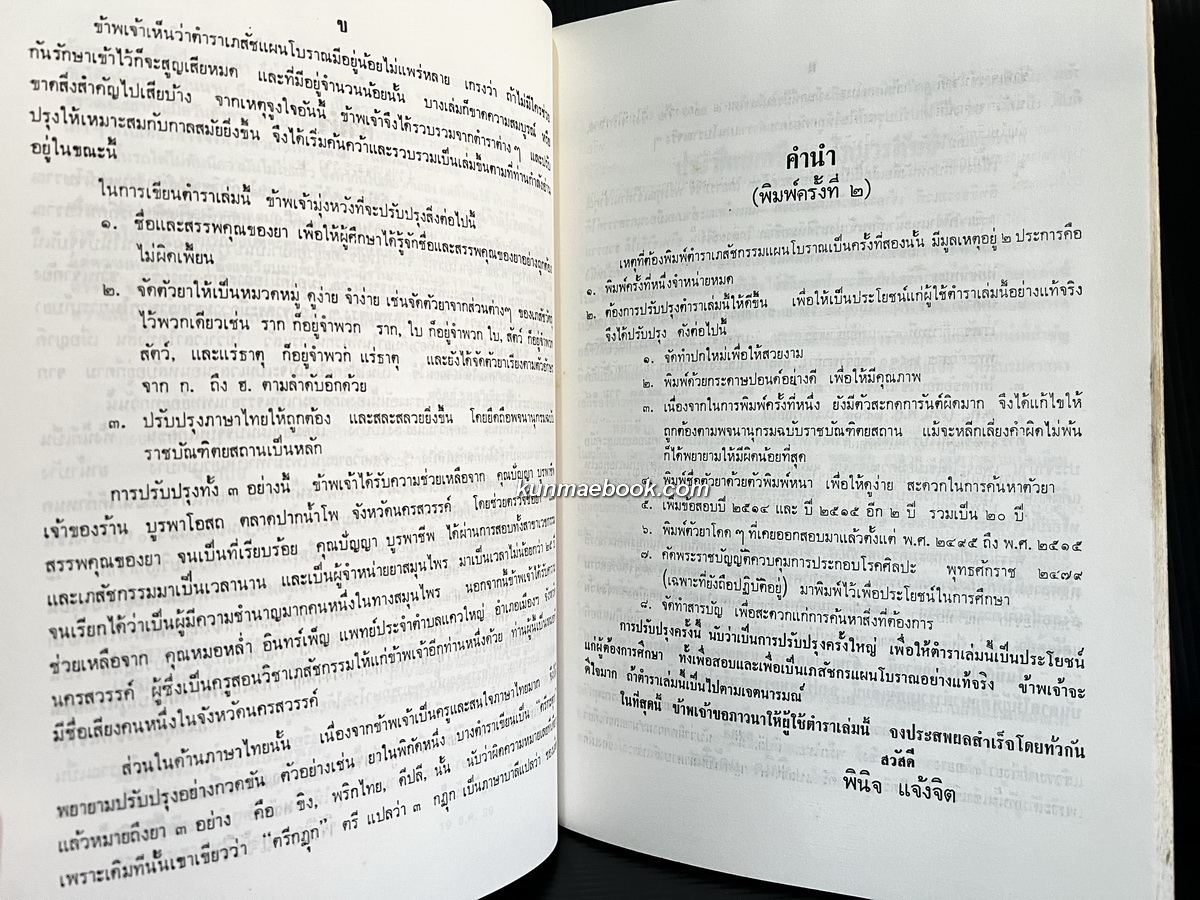 ข
ข้าพเจ้าเห็นว่าตำราเภสัชแผนโบราณมีอยู่น้อยไม่แพร่หลาย เกรงว่า ถ้าไม่มีใครช่วย
กันรักษาเข้าไว้ก็จะสูญเสียหมด และที่มีอยู่จำนวนน้อยนั้น บางเล่มก็ขาดความสมบูรณ์ หรือ
ขาดสิ่งสำคัญไปเสียบ้าง จากเหตุจูงใจอันนี้ ข้าพเจ้าจึงได้รวบรวมจากตำราต่างๆ และปรับ
ปรุงให้เหมาะสมกับกาลสมัยยิ่งขึ้น จึงได้เริ่มค้นคว้าและรวบรวมเป็นเล่มขึ้นตามที่ท่านกำลังอ่าน
อยู่ในขณะนี้
ในการเขียนตำราเล่มนี้ ข้าพเจ้ามุ่งหวังที่จะปรับปรุงสิ่งต่อไปนี้
๑. ชื่อและสรรพคุณของยา เพื่อให้ผู้ศึกษาได้รู้จักชื่อและสรรพคุณของยาอย่างถูกต้อง
ไม่ผิดเพี้ยน
๒. จัดตัวยาให้เป็นหมวดหมู่ ดูง่าย จำง่าย เช่นจัดตัวยาจากส่วนต่างๆ ของเภสัชวัตถุ
ไว้พวกเดียวเช่น ราก ก็อยู่จำพวก ราก, ใบ ก็อยู่จำพวก ใบ, สัตว์ ก็อยู่จำพวก
สัตว์, และแร่ธาตุ ก็อยู่จำพวก แร่ธาตุ และยังได้จัดตัวยาเรียงตามตัวอักษร
จาก ก. ถึง ฮ. ตามลำดับอีกด้วย
๓. ปรับปรุงภาษาไทยให้ถูกต้อง และสละสลวยยิ่งขึ้น โดยยึดถือพจนานุกรมฉบับ
ราชบัณฑิตยสถานเป็นหลัก
การปรับปรุงทั้ง ๓ อย่างนี้ ข้าพเจ้าได้รับความช่วยเหลือจาก คุณปัญญา บูรพาชีพ
เจ้าของร้าน บูรพาโอสถ ตลาดปากน้ำโพ จังหวัดนครสวรรค์ โดยช่วยตรวจชื่อยา
สรรพคุณของยา จนเป็นที่เรียบร้อย คุณปัญญา บูรพาชีพ ได้ผ่านการสอบทั้งสาขาเวชกรรม
และเภสัชกรรมมาเป็นเวลานาน และเป็นผู้จำหน่ายยาสมุนไพร มาเป็นเวลาไม่น้อยกว่า ๒๕ ปี
จนเรียกได้ว่าเป็นผู้มีความชำนาญมากคนหนึ่งในทางสมุนไพร นอกจากนี้ข้าพเจ้าได้รับความ
ช่วยเหลือจาก คุณหมอหล่ำ อินทร์เพ็ญ แพทย์ประจำตำบลแควใหญ่ อำเภอเมืองฯ จังหวัด
นครสวรรค์ ผู้ซึ่งเป็นครูสอนวิชาเภสัชกรรมให้แก่ข้าพเจ้าอีกท่านหนึ่งด้วย ท่านผู้นี้เป็นหมอ
มีชื่อเสียงคนหนึ่งในจังหวัดนครสวรรค์
ส่วนในด้านภาษาไทยนั้น เนื่องจากข้าพเจ้าเป็นครูและสนใจภาษาไทยมาก จึงได้
พยายามปรับปรุงอย่างกวดขัน ตัวอย่างเช่น ยาในพิกัดหนึ่ง บางตำราเขียนเป็น “ตรีกฎุก”
แล้วหมายถึงยา ๓ อย่าง คือ ขิง, พริกไทย, ดีปลี, นั้น นับว่าผิดความหมายเสียทีเดียว
เพราะเดิมทีนั้นเขาเขียวว่า “ตรีกฏุก” ตรี แปลว่า ๓ กฏุก เป็นภาษาบาลีแปลว่า ของเผ็ด
คำนำ
(พิมพ์ครั้งที่ ๒)
เหตุที่ต้องพิมพ์ตำราเภสัชกรรมแผนโบราณเป็นครั้งที่สองนั้น มีมูลเหตุอยู่ ๒ ประการคือ
๑. พิมพ์ครั้งที่หนึ่งจำหน่ายหมด
๒. ต้องการปรับปรุงตำราเล่มนี้ให้ดีขึ้น เพื่อให้เป็นประโยชน์แก่ผู้ใช้ตำราเล่มนี้อย่างแท้จริง
จึงได้ปรับปรุง ดังต่อไปนี้
๑. จัดทำปกใหม่เพื่อให้สวยงาม
๒. พิมพ์ด้วยกระดาษปอนด์อย่างดี เพื่อให้มีคุณภาพ
๓. เนื่องจากในการพิมพ์ครั้งที่หนึ่ง ยังมีตัวสะกดการันต์ผิดมาก จึงได้แก้ไขให้
ถูกต้องตามพจนานุกรมฉบับราชบัณฑิตยสถาน แม้จะหลีกเลี่ยงคำผิดไม่พ้น
ก็ได้พยายามให้มีผิดน้อยที่สุด
๔. พิมพ์ชื่อตัวยาด้วยตัวพิมพ์หนา เพื่อให้ดูง่าย สะดวกในการค้นหาตัวยา
kunmaebook.com
๕. เพิ่มข้อสอบปี ๒๕๑๔ และ ปี ๒๕๑๕ อีก ๒ ปี รวมเป็น ๒๐ ปี
๖. พิมพ์ตัวยาโดด ๆ ที่เคยออกสอบมาแล้วตั้งแต่ พ.ศ. ๒๔๙๕ ถึง พ.ศ. ๒๕๑๕
๗. คัดพระราชบัญญัติควบคุมการประกอบโรคศิลปะ พุทธศักราช ๒๔๗๙
(เฉพาะที่ยังถือปฏิบัติอยู่) มาพิมพ์ไว้เพื่อประโยชน์ในการศึกษา
๘. จัดทำสารบัญ เพื่อสะดวกแก่การค้นหาสิ่งที่ต้องการ
การปรับปรุงครั้งนี้ นับว่าเป็นการปรับปรุงครั้งใหญ่ เพื่อให้ตำราเล่มนี้เป็นประโยชน์
แก่ผู้ต้องการศึกษา ทั้งเพื่อสอบและเพื่อเป็นเภสัชกรแผนโบราณอย่างแท้จริง ข้าพเจ้าจะ
ดีใจมาก ถ้าตำราเล่มนี้เป็นไปตามเจตนารมณ์
ในที่สุดนี้ ข้าพเจ้าขอภาวนาให้ผู้ใช้ตำราเล่มนี้ จงประสพผลสำเร็จโดยทั่วกัน
สวัสดี
พินิจ แจ้งจิต